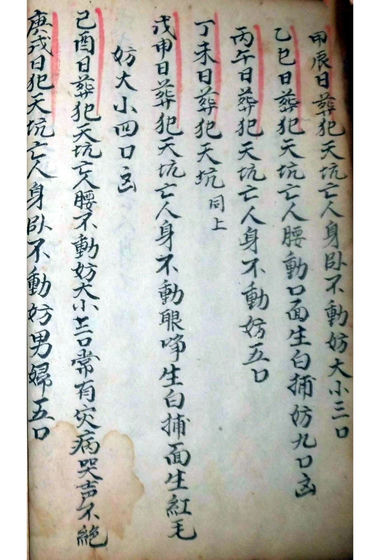 甲辰日葬犯天坑亡人身臥不動妨大小三口
乙巳日葬犯天坑亡人腰動口面生白捕妨九口凶
丙午日葬犯天坑亡人身不動妨五口
丁未日葬犯天坑同上
戊申日葬犯天坑亡人身不動眼睁生白捕面生紅毛
妨大小四口凶
己酉日葬犯天坑亡人腰不動妨大小三口常有灾病哭声不絶
庚戌日犯天坑亡人身卧不動妨男婦五口